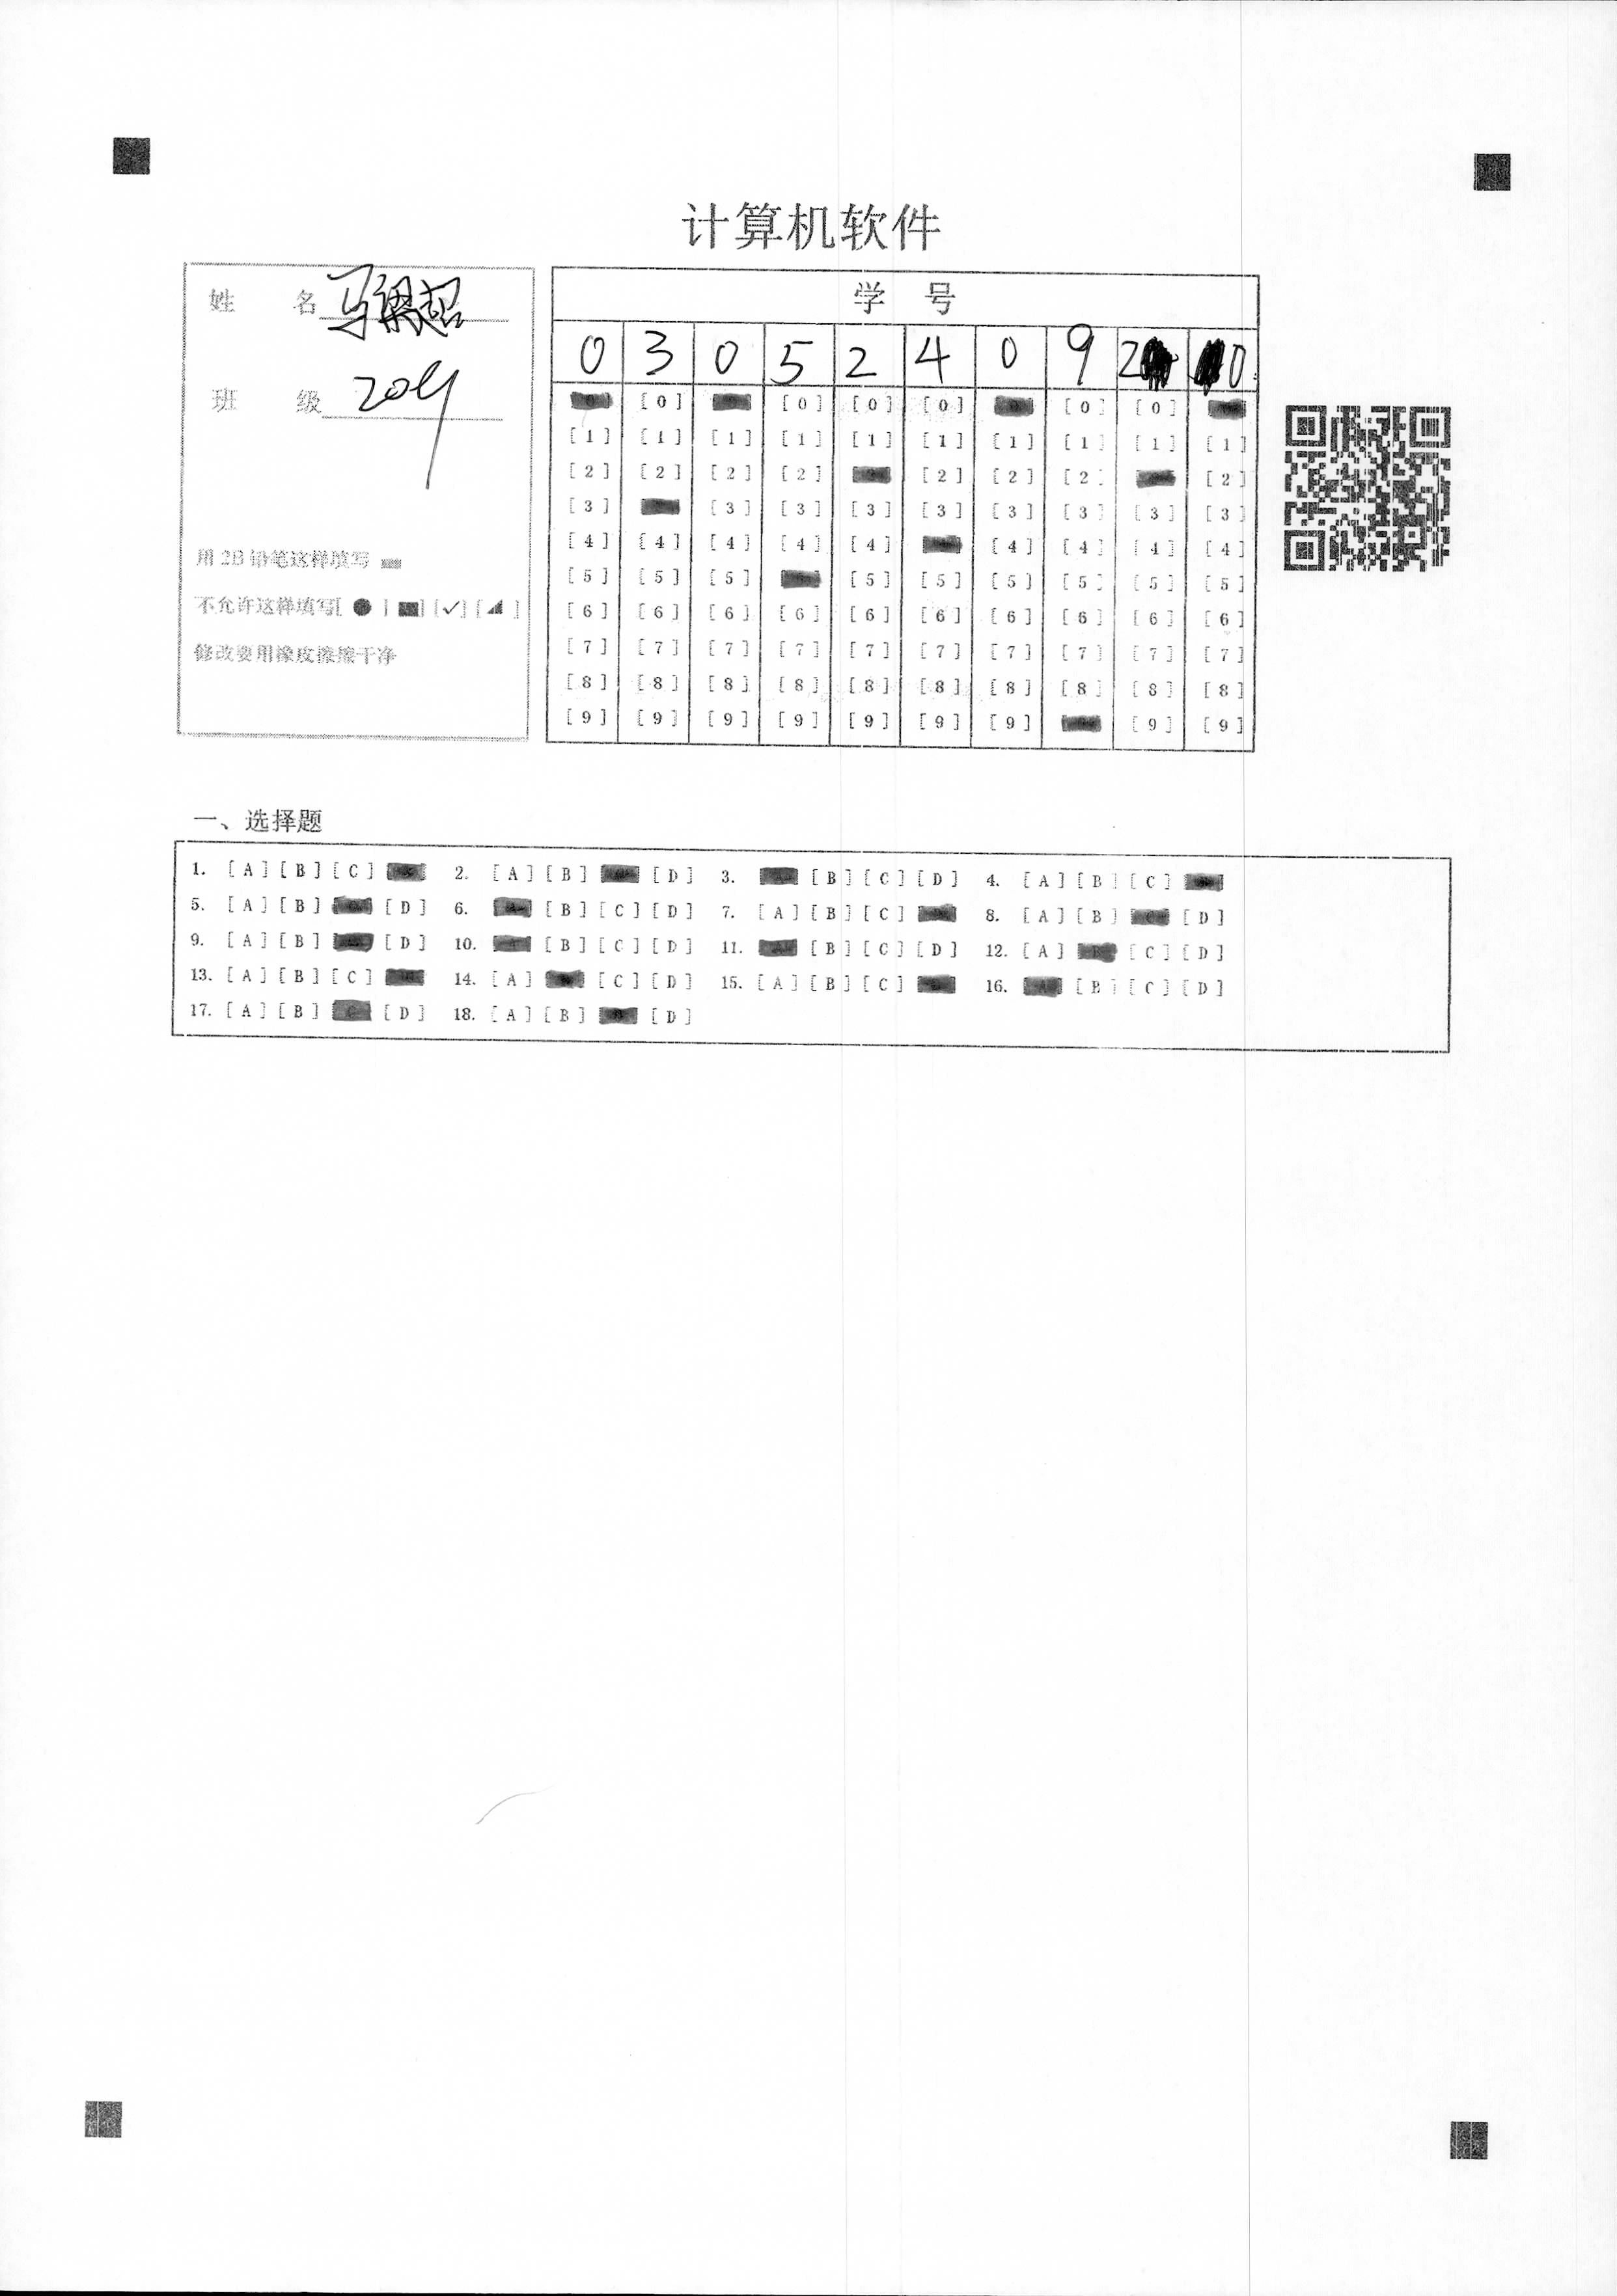 计算机软件
姓 名 马梁超
班 级 204
用2B铅笔这样填写
不允许这样填写[ ● ] [■] [✓] [◢]
修改要用橡皮擦擦干净
学 号
0 3 0 5 2 4 0 9 2 0
[0] [0] [0] [0] [0] [0]
[1] [1] [1] [1] [1] [1] [1] [1] [1] [1]
[2] [2] [2] [2] [2] [2] [2] [2]
[3] [3] [3] [3] [3] [3] [3] [3] [3]
[4] [4] [4] [4] [4] [4] [4] [4] [4]
[5] [5] [5] [5] [5] [5] [5] [5] [5]
[6] [6] [6] [6] [6] [6] [6] [6] [6] [6]
[7] [7] [7] [7] [7] [7] [7] [7] [7] [7]
[8] [8] [8] [8] [8] [8] [8] [8] [8] [8]
[9] [9] [9] [9] [9] [9] [9] [9] [9]
一、选择题
1. [A] [B] [C] 2. [A] [B] [D] 3. [B] [C] [D] 4. [A] [B] [C]
5. [A] [B] [D] 6. [B] [C] [D] 7. [A] [B] [C] 8. [A] [B] [D]
9. [A] [B] [D] 10. [B] [C] [D] 11. [B] [C] [D] 12. [A] [C] [D]
13. [A] [B] [C] 14. [A] [C] [D] 15. [A] [B] [C] 16. [B] [C] [D]
17. [A] [B] [D] 18. [A] [B] [D]